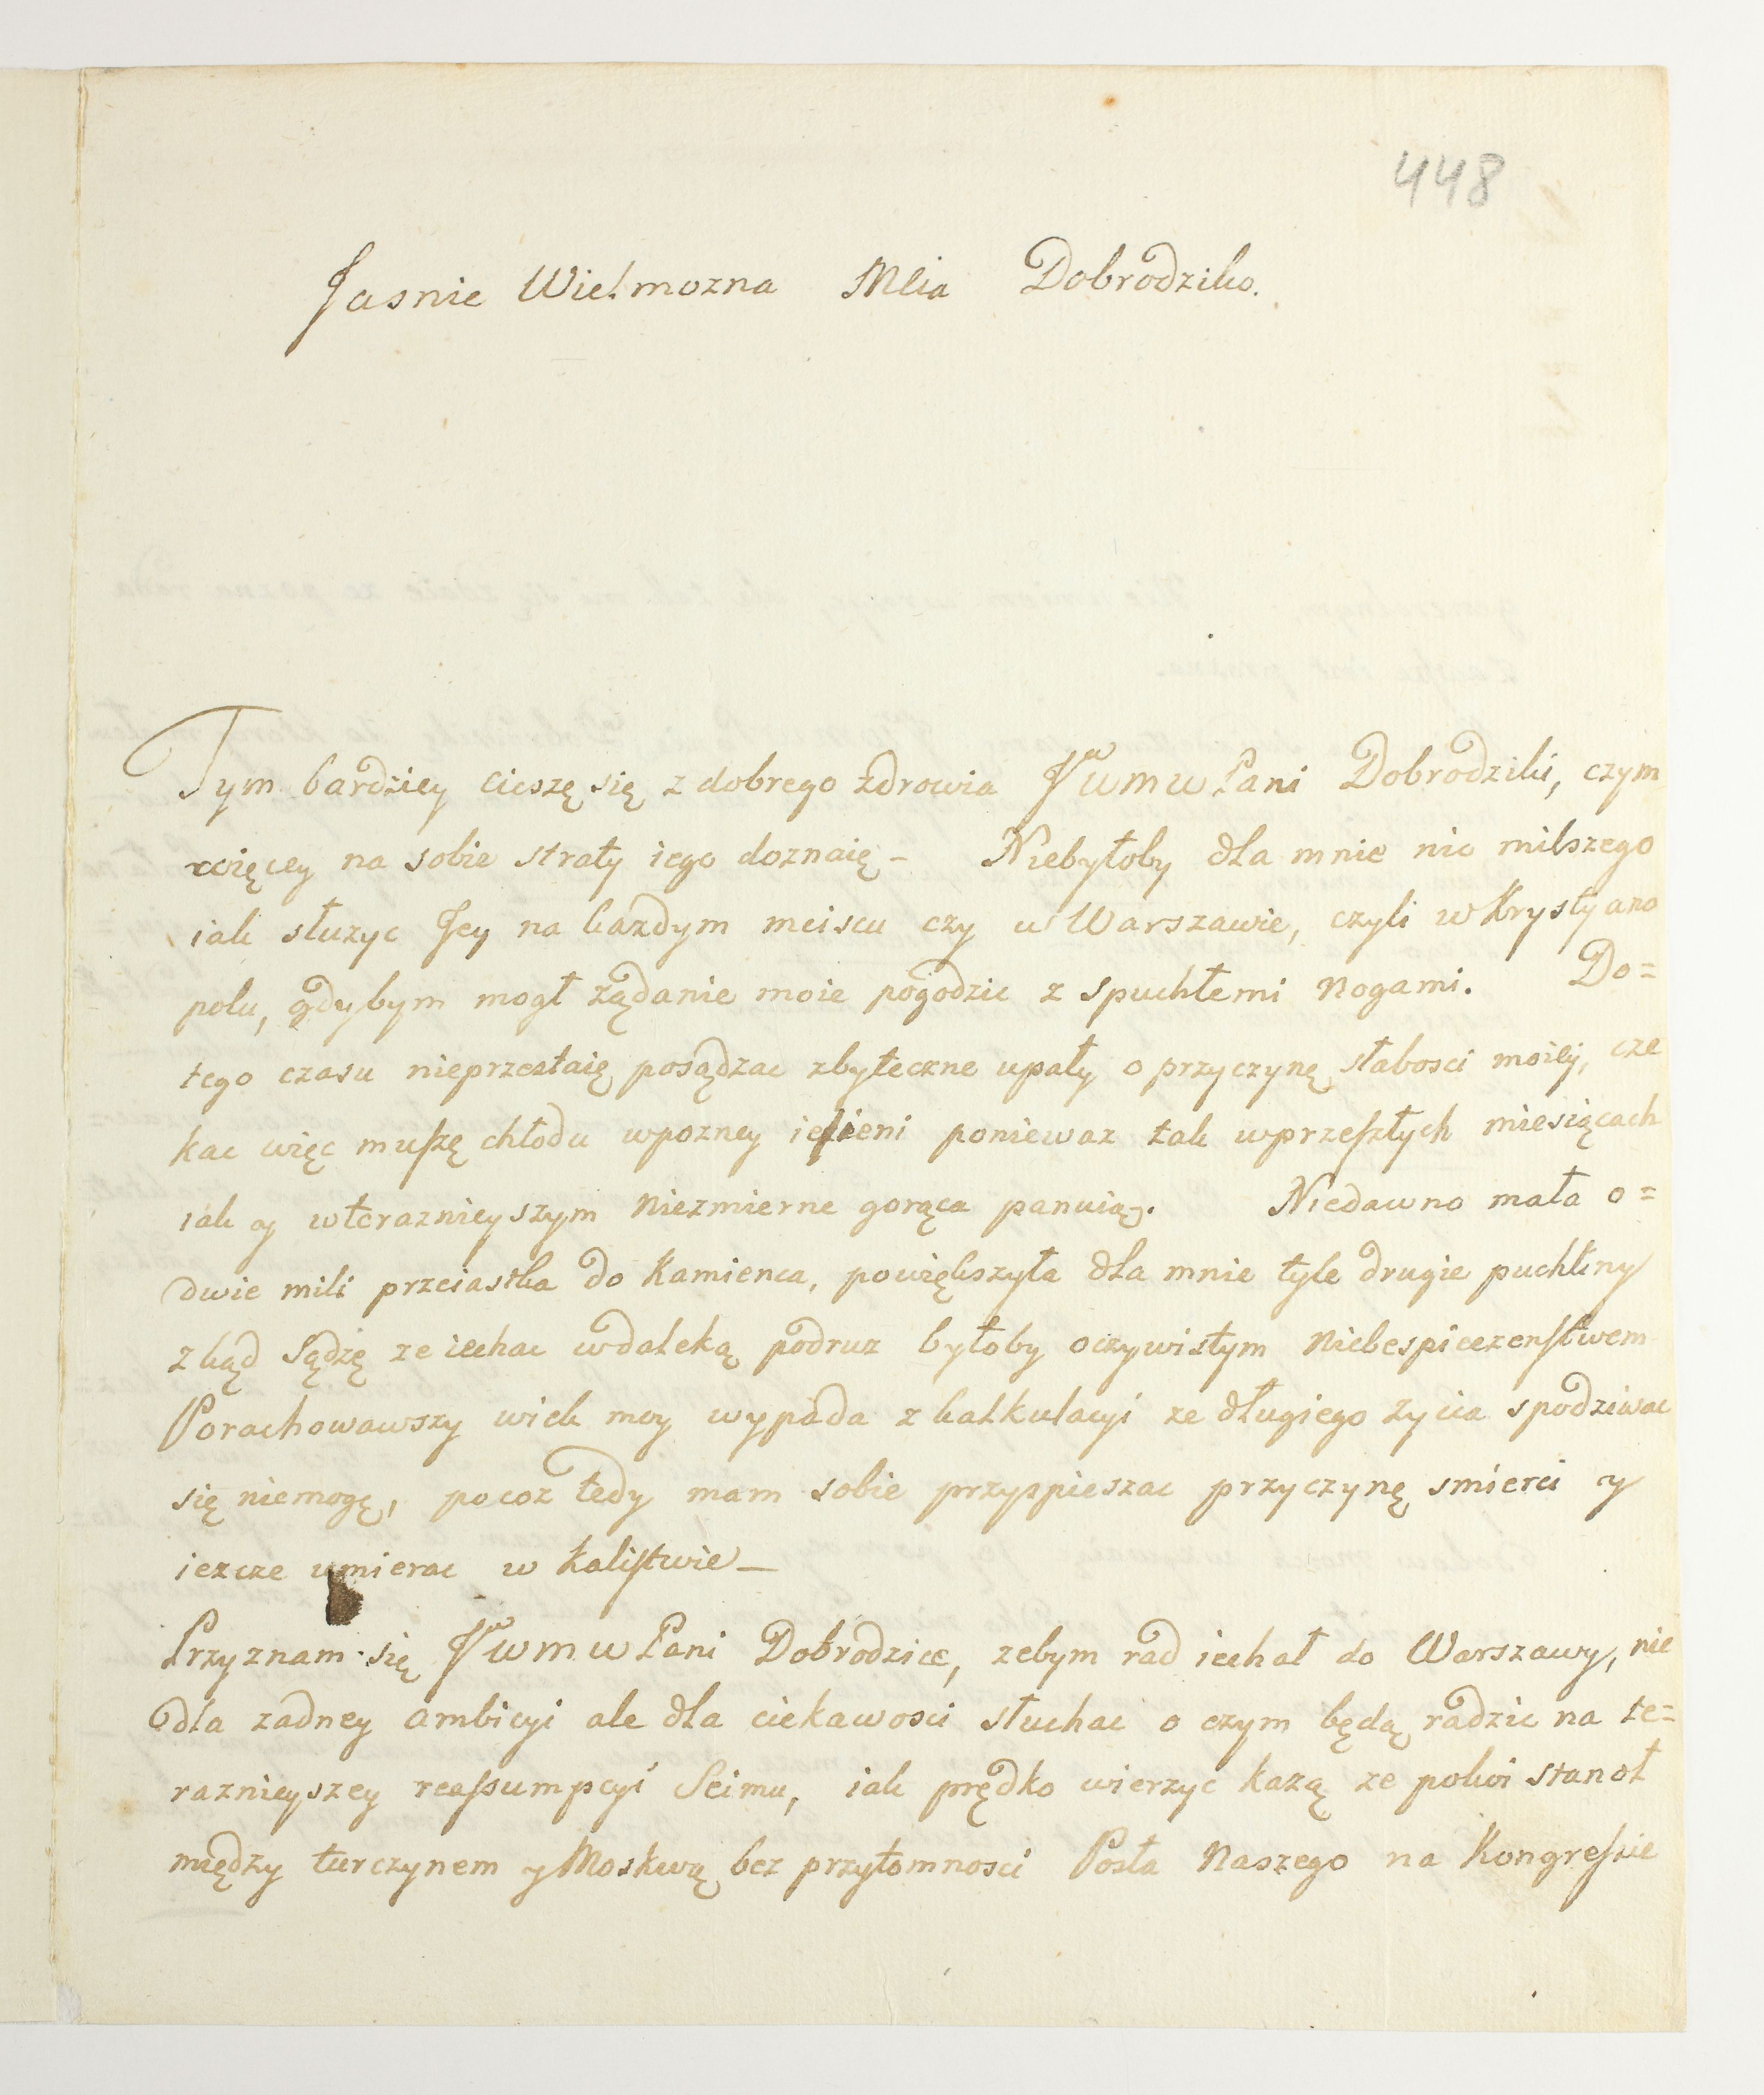 448
Jasnie Wielmozna Mcia Dobrodziko.
Tym bardziey cieszę się z dobrego zdrowia JWWMWPani Dobrodziki, czym
więcey na sobie straty iego doznaię – Niebyłoby dla mnie nic milszego
iak słuzyc Jey na kazdym meiscu czy w Warszawie, czyli w Krystyano
polu, gdybym mogł ządanie moie pogodzic z spuchłemi nogami. Do=
tego czasu nieprzestaię posądzac zbyteczne upały o przyczynę słabosci moiey, cze
kac więc muszę chłodu wpozney iesieni poniewaz tak wprzeszłych miesiącach
iak y wteraznieyszym niezmierne gorąca panuią. Niedawno mała o=
dwie mili przeiastka do Kamienca, powiększyła dla mnie tyle drugie puchliny
zkąd sądzę ze iechac wdaleką podruz byłoby oczywistym niebespieczenstwem
Porachowawszy wiek moy wypada z kalkulacyi ze długiego zycia spodziwac
się niemogę, pocoz tedy mam sobie przyspieszac przyczynę smierci y
iezcze umierac w kalistwie –
Przyznam się JWWMWPani Dobrodzice, zebym rad iechał do Warszawy, nie
dla zadney ambicyi ale dla ciekawosci słuchac o czym będą radzic na te=
raznieyszey reassumpcyi Seimu, iak prędko wierzyc kazą ze pokoi stanoł
między turczynem y Moskwą bez przytomnosci Posła Naszego na Kongressie